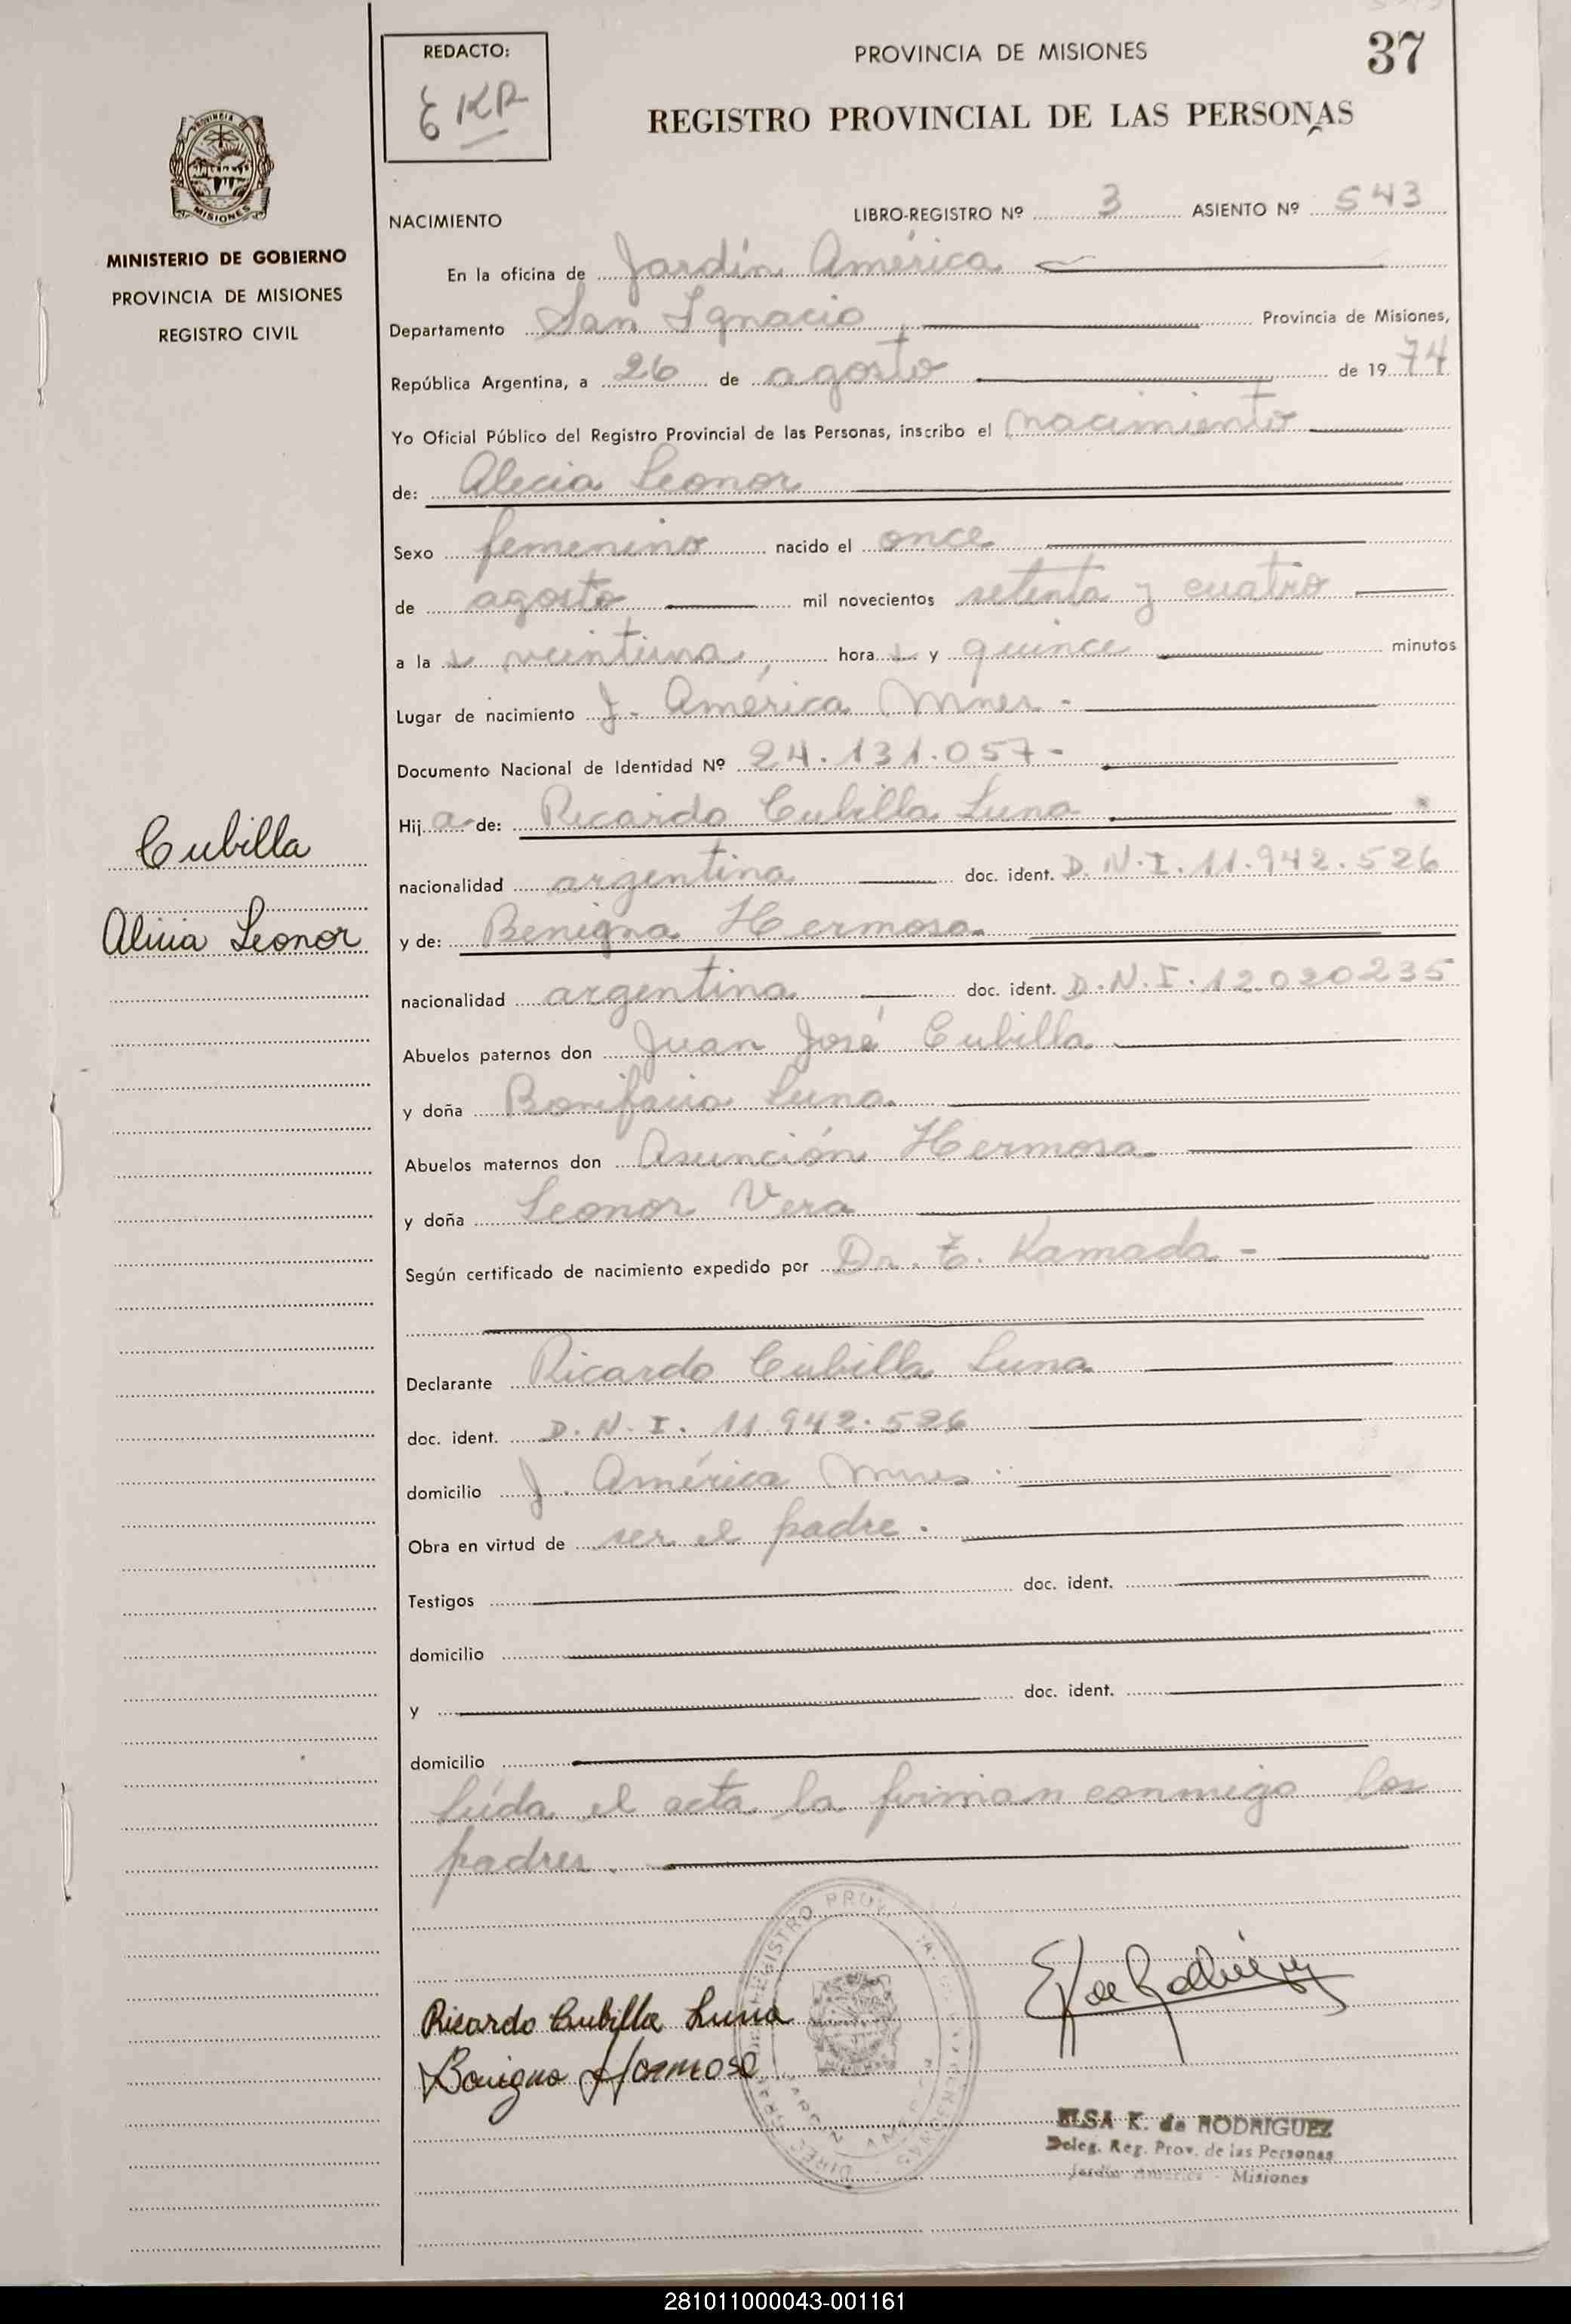 REDACTO:
EKR
PROVINCIA DE MISIONES
37
REGISTRO PROVINCIAL DE LAS PERSONAS
PROVINCIA
MISIONES
MINISTERIO DE GOBIERNO
PROVINCIA DE MISIONES
REGISTRO CIVIL
NACIMIENTO LIBRO-REGISTRO Nº 3 ASIENTO Nº 543
En la oficina de Jardín América
Departamento San Ignacio, Provincia de Misiones,
República Argentina, a 26 de agosto de 1974
Yo Oficial Público del Registro Provincial de las Personas, inscribo el nacimiento
de: Alicia Leonor
Sexo femenino nacido el once
de agosto mil novecientos setenta y cuatro
a las veintiuna, horas y quince minutos
Lugar de nacimiento J. América Mnes -
Documento Nacional de Identidad Nº 24.131.057-
Cubilla
Hija de: Ricardo Cubilla Luna
nacionalidad argentina doc. ident. D.N.I. 11.942.526
Alicia Leonor
y de: Benigna Hermosa
nacionalidad argentina doc. ident. D.N.I. 12.020235
Abuelos paternos don Juan José Cubilla
y doña Bonifacia Luna
Abuelos maternos don Asunción Hermosa
y doña Leonor Vera
Según certificado de nacimiento expedido por Dr. T. Kamada -
Declarante Ricardo Cubilla Luna
doc. ident. D.N.I. 11.942.526
domicilio J. América Mnes
Obra en virtud de ser el padre.
Testigos doc. ident.
domicilio
y doc. ident.
domicilio
Leída el acta la firman conmigo los
padres.
Ricardo Cubilla Luna
Benigna Hermosa
ELSA K. de RODRIGUEZ
Deleg. Reg. Prov. de las Personas
Jardín América - Misiones
281011000043-001161